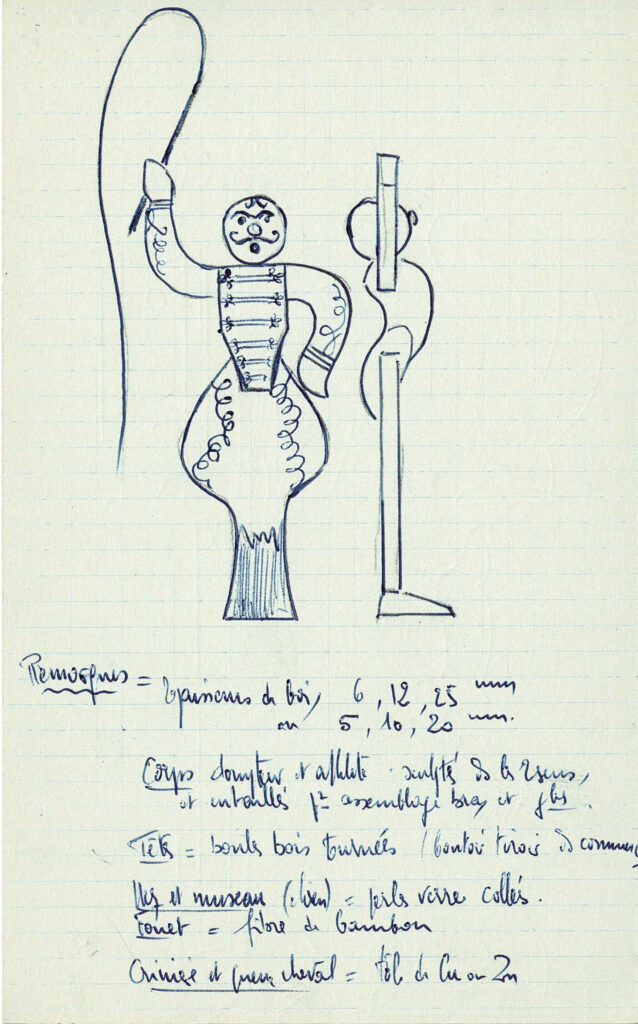 Remarques = Epaisseurs de bois, 6, 12, 25 mm
ou 5, 10, 20 mm.
Corps dompteur et athlète sculptés ds les 2 sens,
et entaillés pr assemblage bras et jbes.
Têtes = boules bois tournées (bouton tiroir ds commerce
Nez et museau (chien) = perles verre collés.
Fouet = fibre de bambou
Crinière et queue cheval = tôle de Cu ou Zn